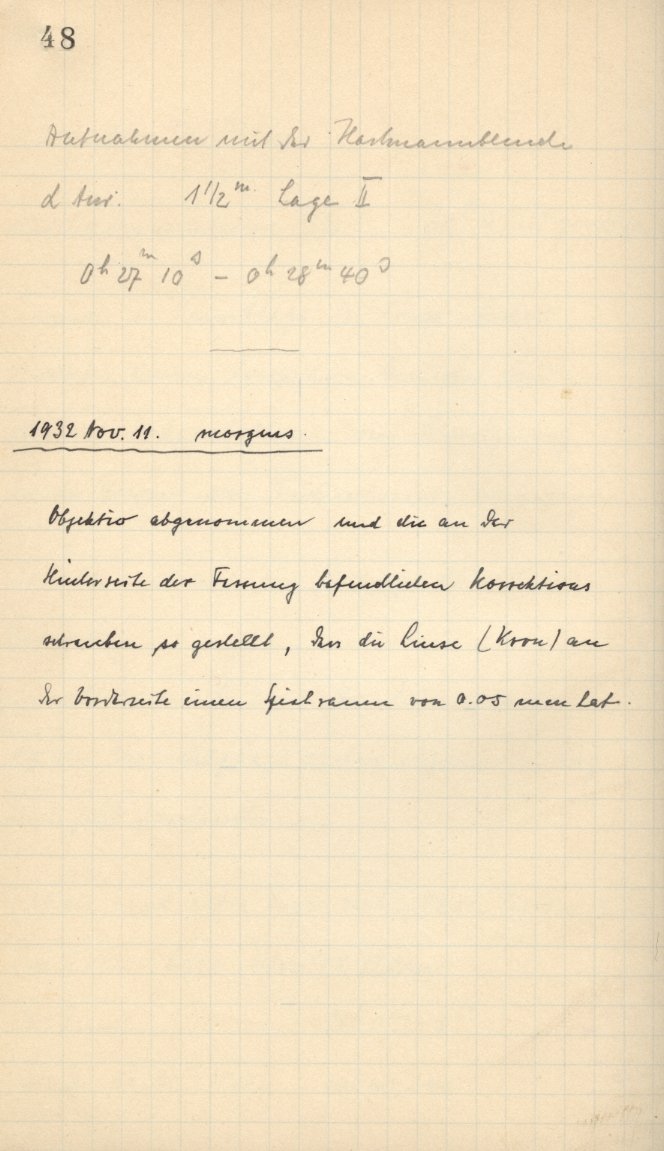 48
Aufnahmen mit der Hartmannblende
α Aur. 1 1/2ᵐ Lage II
0ʰ 27ᵐ 10ˢ – 0ʰ 28ᵐ 40ˢ
1932 Nov. 11. morgens.
Objektiv abgenommen und die an der
Hinterseite der Fassung befindlichen Korrektions
schrauben so gestellt, dass die Linse (Kron) an
der Vorderseite einen Spielraum von 0.05 mm hat.